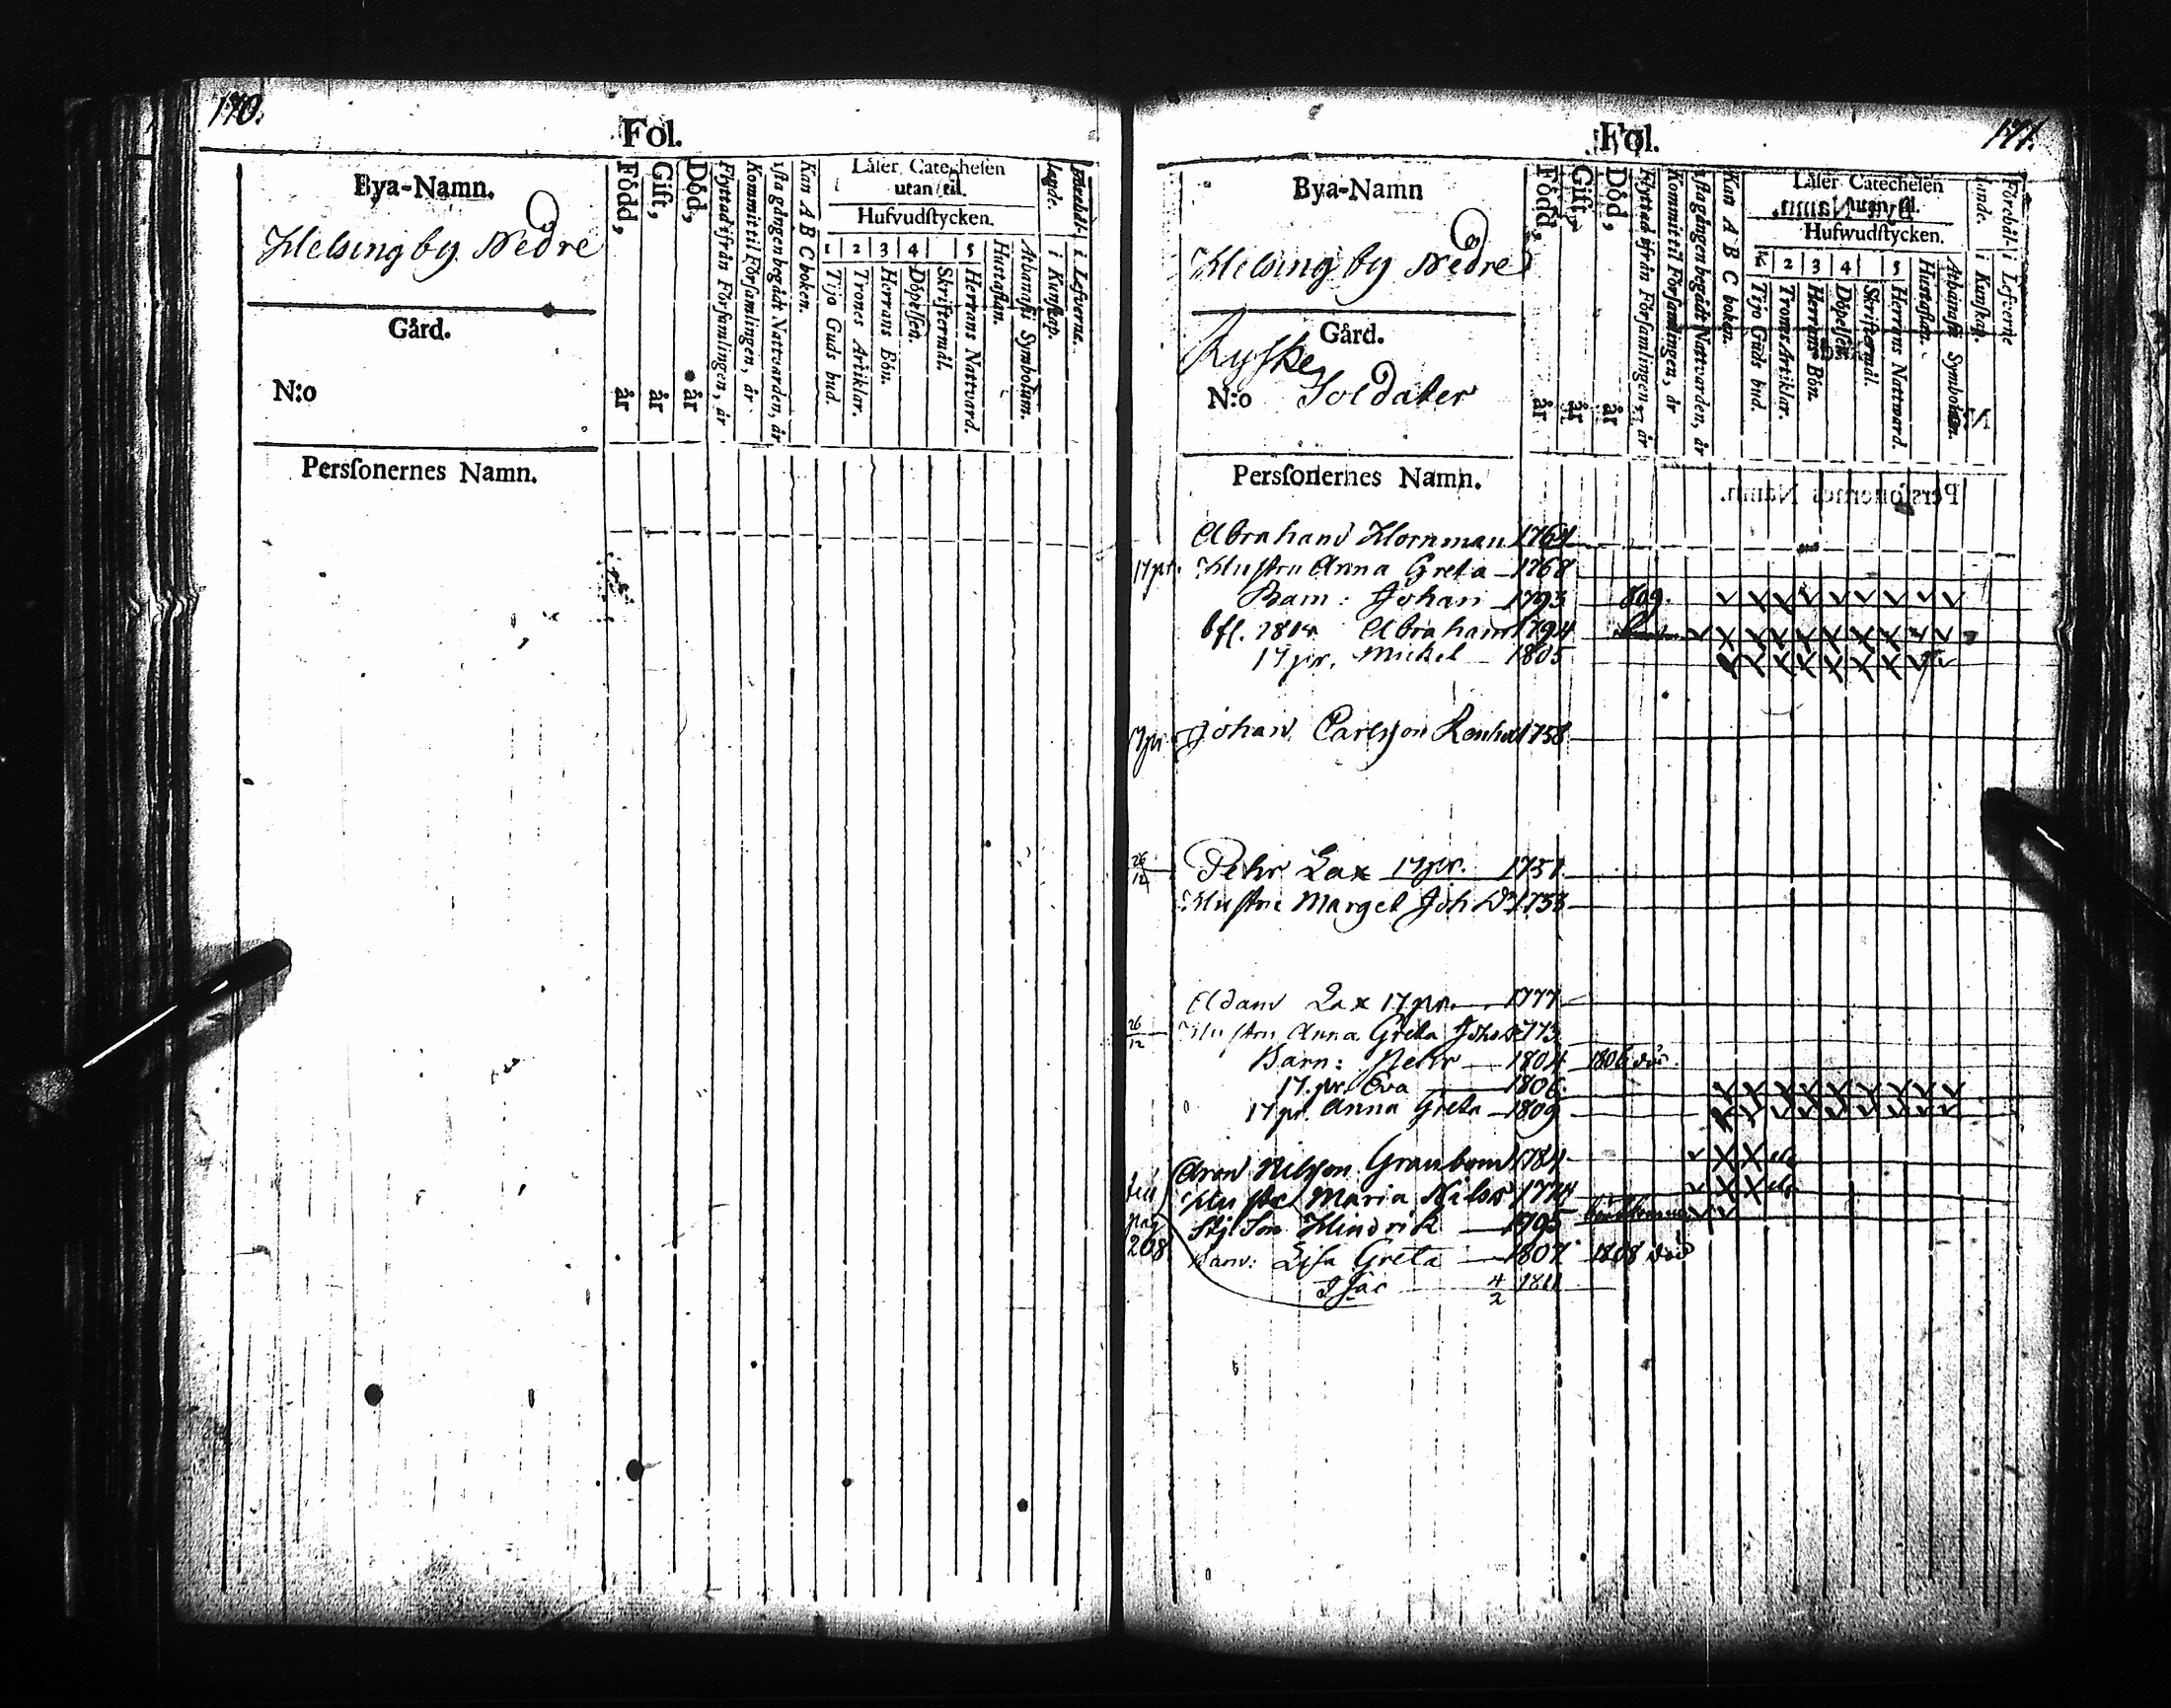 170.
Fol.
Bya-Namn.
Helsingby Nedre
Gård.
N:o
Persſonernes Namn.
Född, år
Gift, år
Död, år
Flyttad ifrån Förſamlingen, år
Kommit til Förſamlingen, år
1ſta gången begådt Nattvarden, år
Kan A B C boken.
Läſer Catecheſen
utan til.
Hufvudſtycken.
1 2 3 4 5
Tijo Guds bud.
Trones Artiklar.
Herrans Bön.
Döpelſen.
Skriftermål.
Herrans Nattvard.
Huſtaflan.
Athanaſii Symbolum.
i Kunſkap.
i Lefverne.
171.
Fol.
Bya-Namn
Helsingby Nedre
Gård.
Ryſke
N:o Soldater
Persſonernes Namn.
Född, år
Gift, år
Död, år
Flyttad ifrån Förſamlingen, år
Kommit til Förſamlingen, år
1ſta gången begådt Nattvarden, år
Kan A B C boken.
Läſer Catecheſen
utan til.
Hufwudſtycken.
2 3 4 5
Tijo Guds bud.
Trones Artiklar.
Herrans Bön.
Döpelſen
Skriftermål.
Herrans Nattward.
Huſtaflan.
Athanaſii Symbolum.
Förehål-lande.
i Kunſkap.
i Lefverne
Abraham Hornman 1764
17 pr. Huſtru Anna Greta 1768
Barn: Johan 1793 809.
Abraham 1794
17 pr. Mickel 1805
17 pr. Johan Carlſson 1758
26/12 Pehr Lax 17 pr. 1751
Huſtru Marget Joh Dr 1753
Adam Lax 17 pr. 1777
26/12 Huſtru Anna Greta Johs Dr 1773
Barn: Pehr 1804 1806 död.
17. pr. Eva 1806
17 pr. Anna Greta 1809
Aron Nilsson Granbom 1784
Huſtru Maria Nilsd 1774
Stj. Son Hindrik 1795
pag 208
Barn: Liſa Greta 1807 1808 död
Iſac 4/2 1811